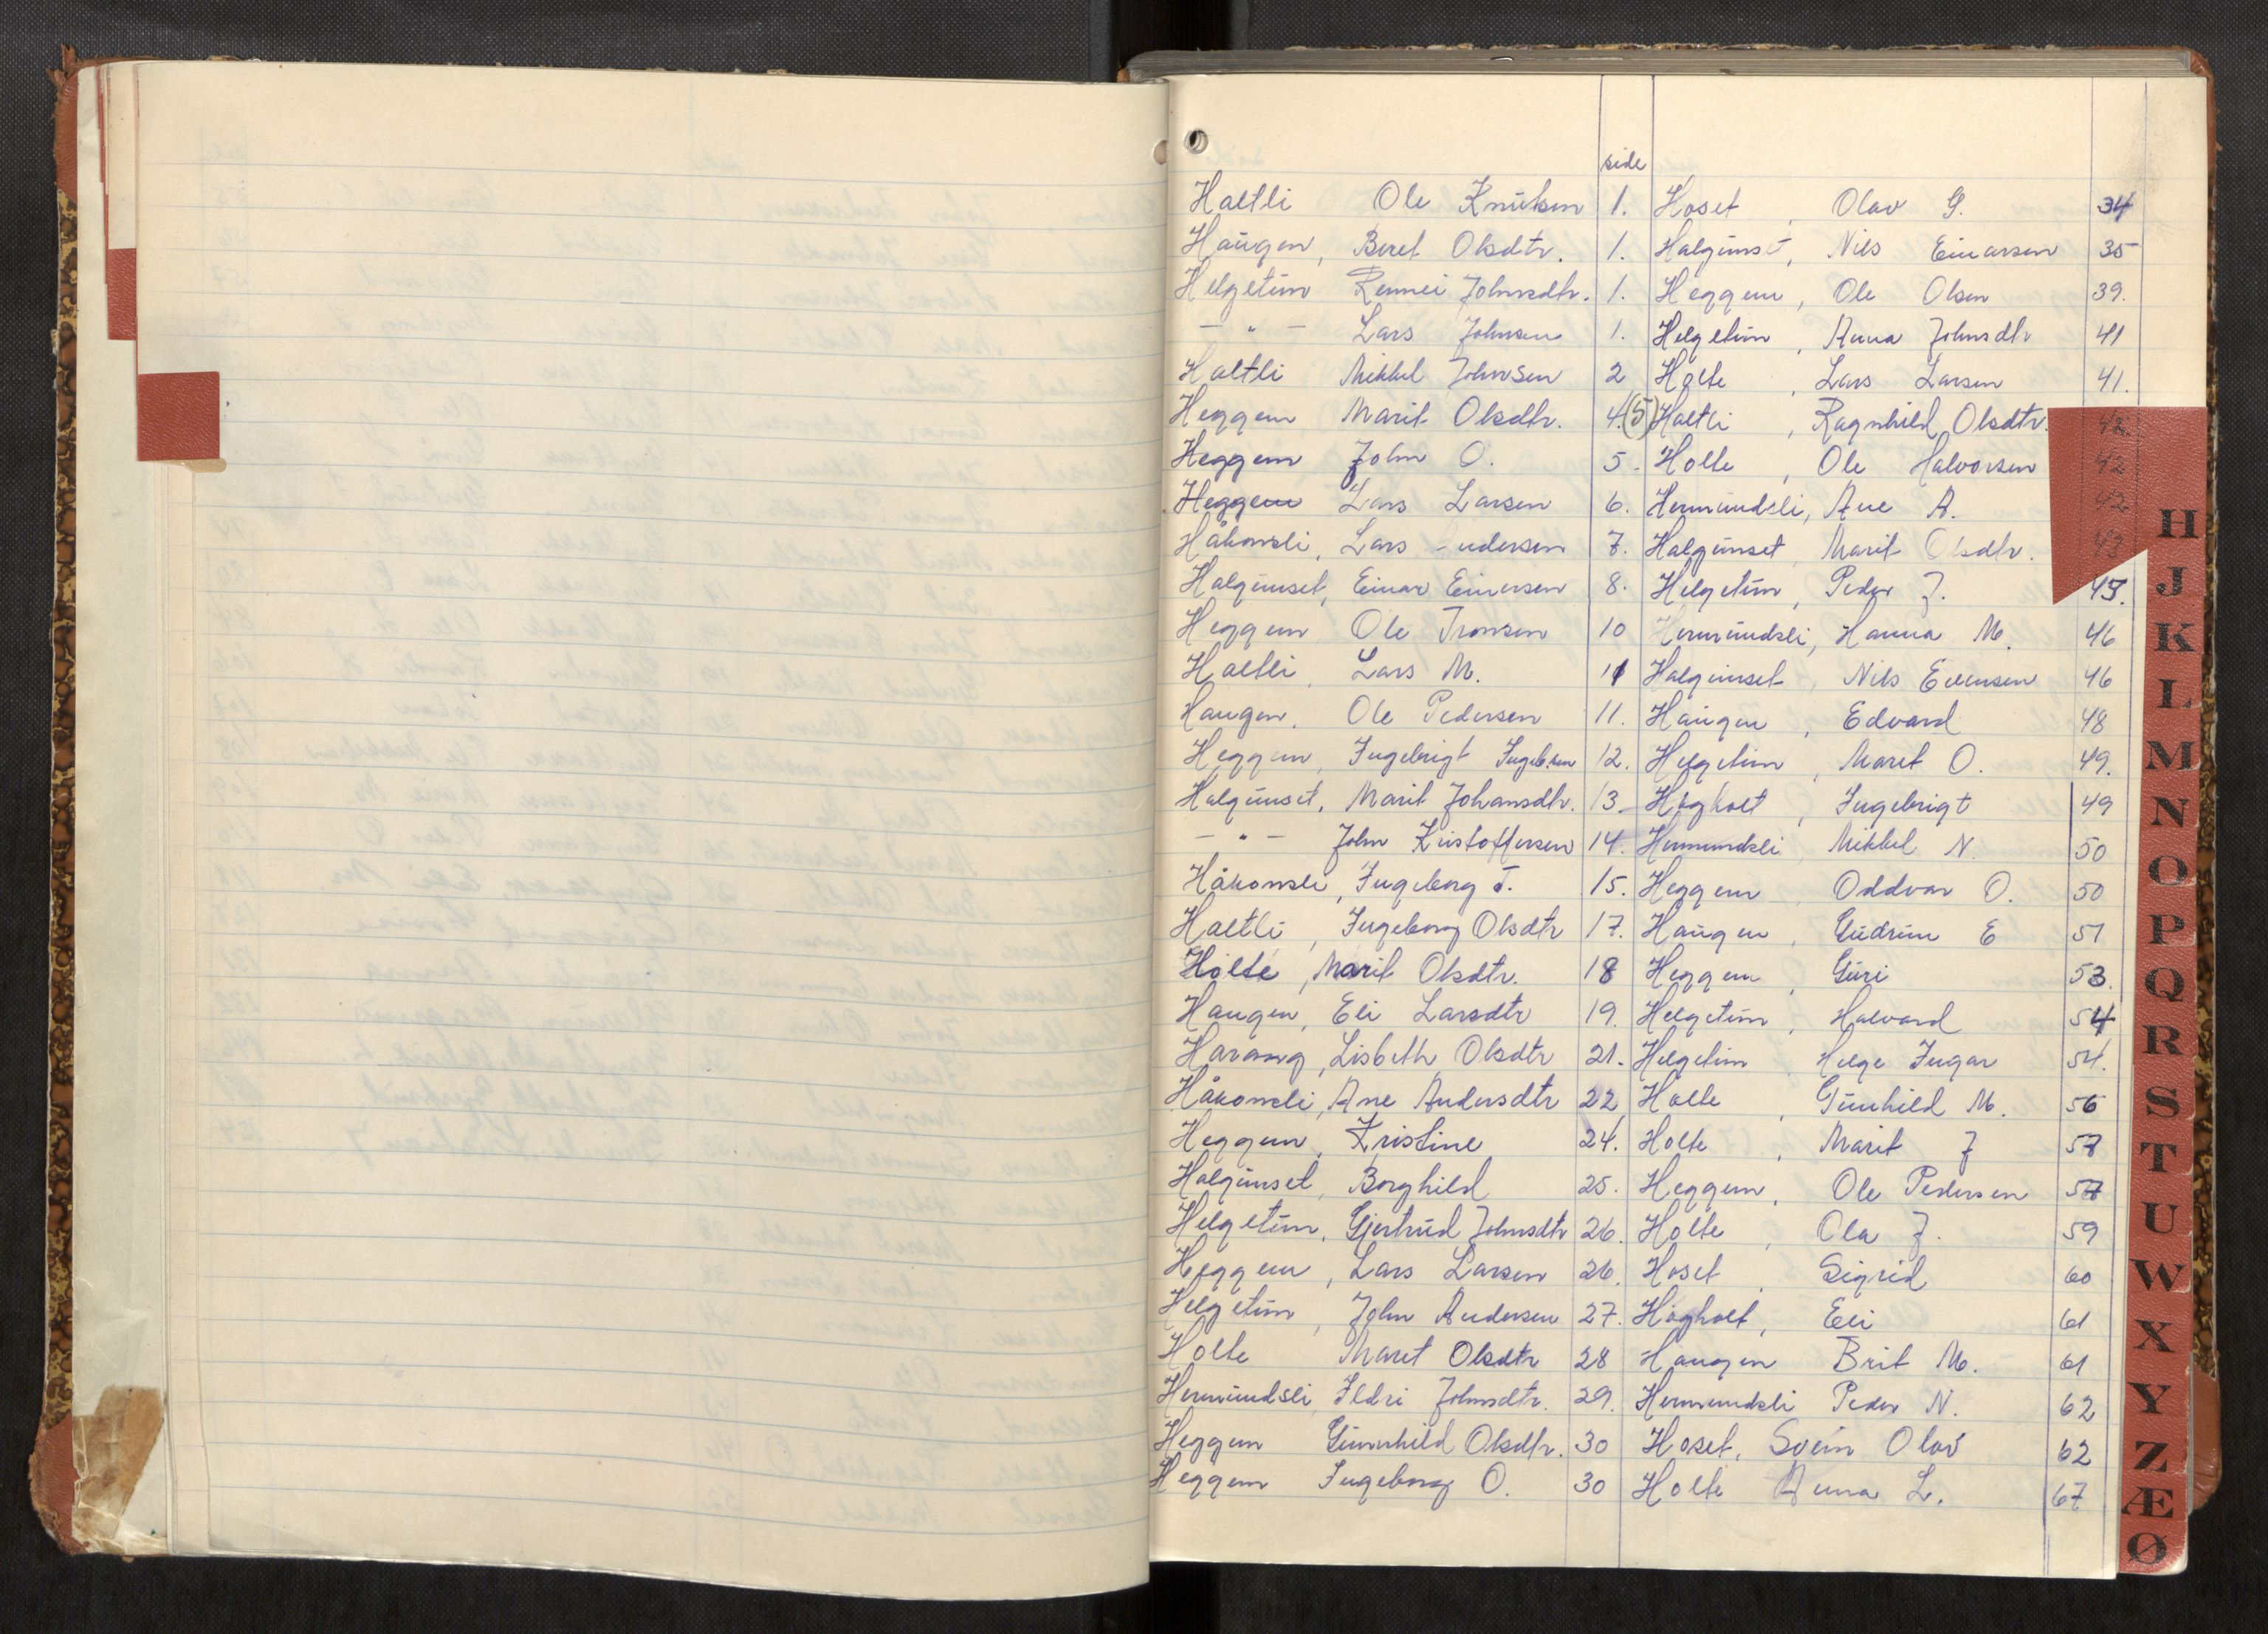 side
Haltli Ole Knutsen 1.
Haugen, Beret Olsdtr. 1.
Helgetun Rennei Johnsdtr. 1.
— " — Lars Johnsen 1.
Haltli Mikkel Johnsen 2
Heggem Marit Olsdtr. 4.(5)
Heggem John O. 5.
Heggem Lars Larsen 6.
Håkonsli, Lars Andersen 7.
Halgunset, Einar Einarsen 8.
Heggem Ole Tronsen 10
Haltli, Lars M. 11
Haugen, Ole Pedersen 11.
Heggem, Ingebrigt Ingebr.sen 12.
Halgunset, Marit Johansdtr. 13
— " — John Kristoffersen 14.
Håkonsli, Ingeborg T. 15.
Haltli, Ingeborg Olsdtr 17.
Holte, Marit Olsdtr. 18
Haugen, Eli Larsdtr 19.
Harang, Lisbeth Olsdtr 21.
Håkonsli, Ane Andersdtr 22
Heggem, Kristine 24.
Halgunset, Borghild 25.
Helgetun, Gjertrud Johnsdtr 26.
Heggem, Lars Larsen 26.
Helgetun, John Andersen 27.
Holte Maret Olsdtr 28
Hermundsli, Ildri Johnsdtr. 29.
Heggem Gunnhild Olsdtr. 30
Heggem Ingeborg O. 30
Hoset, Olav G. 34
Halgunset, Nils Einarsen 35
Heggem, Ole Olsen 39.
Helgetun, Anna Johnsdtr 41
Holte, Lars Larsen 41.
Haltli, Ragnhild Olsdtr. 42
Holte, Ole Halvorsen 42
Hermundsli, Ane A. 42
Halgunset, Marit Olsdtr. 43
Helgetun, Peder J. 43.
Hermundsli, Hanna M. 46
Halgunset, Nils Evensen 46
Haugen, Edvard 48
Helgetun, Maret O. 49.
Høgholt, Ingebrigt 49
Hermundsli, Mikkel N. 50
Heggem Oddvar O. 50
Haugen, Gudrun E 51
Heggem, Guri 53.
Helgetun, Halvard 54
Helgetun, Helge Ingar 54.
Holte, Gunhild M. 56
Holte, Marit J 57
Heggem, Ole Pedersen 57
Holte, Ola J. 59
Hoset, Sigrid 60
Høgholt, Eli 61
Haugen Brit M. 61
Hermundsli Peder N. 62
Hoset, Svein Olav 62
Holte Anna L. 67
H
J
K
L
M
N
O
P
Q
R
S
T
U
W
X
Y
Z
Æ
Ø